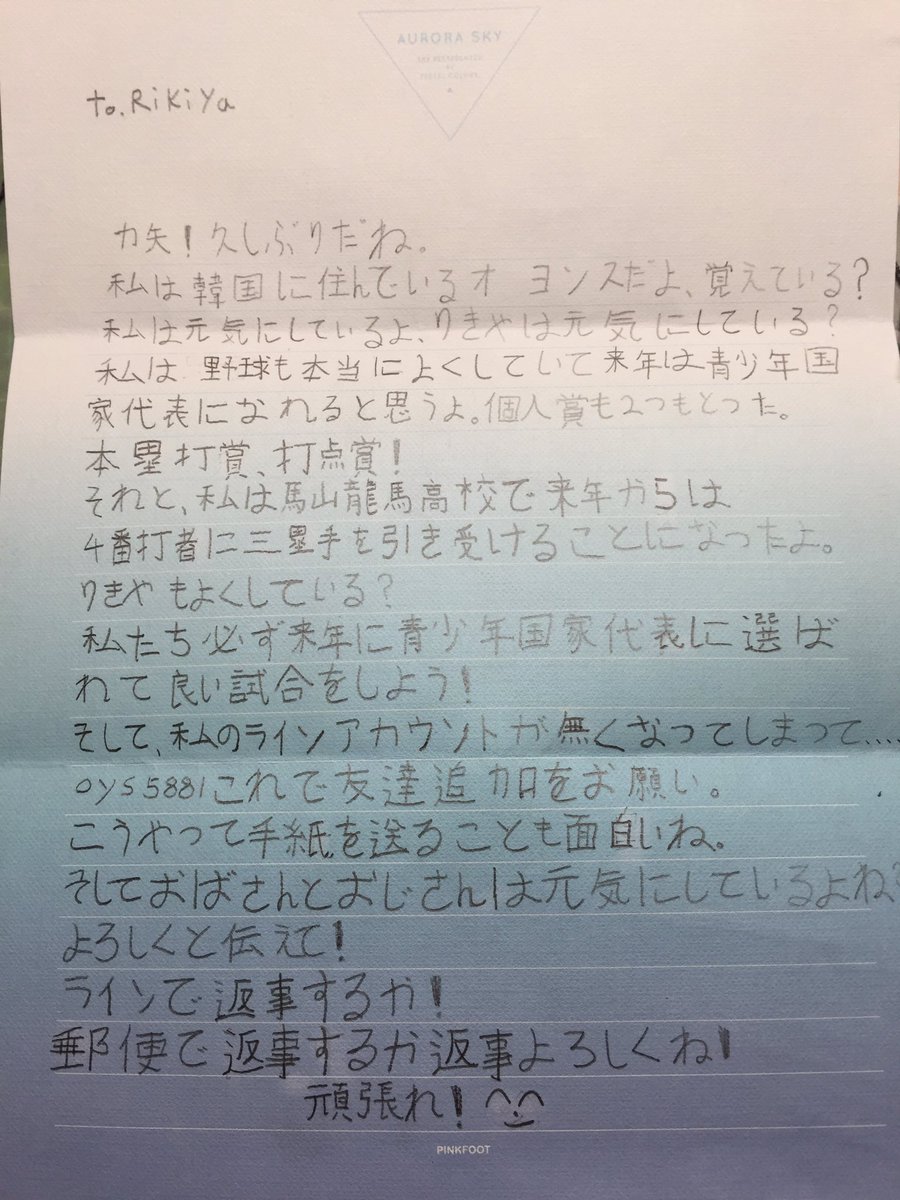 AURORA SKY
to.RiKiYa
力矢!久しぶりだね。
私は韓国に住んでいるオ ヨンスだよ、覚えている?
私は元気にしているよ、りきやは元気にしている?
私は野球も本当によくしていて来年は青少年国
家代表になれると思うよ。個人賞も2つもとった。
本塁打賞、打点賞!
それと、私は馬山龍馬高校で来年からは
4番打者に三塁手を引き受けることになったよ。
りきやもよくしている?
私たち必ず来年に青少年国家代表に選ば
れて良い試合をしよう!
そして、私のラインアカウントが無くなってしまって....
oys5881これで友達追加をお願い。
こうやって手紙を送ることも面白いね。
そしておばさんとおじさんは元気にしているよね?
よろしくと伝えて!
ラインで返事するか!
郵便で返事するか返事よろしくね!
頑張れ! ^.^
PINKFOOT